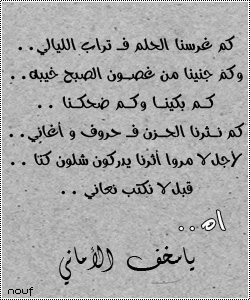 كم غرسنا الحلم فـ تراب الليالي..
وكم جنينا من غصون الصبح خيبه..
كم بكينا وكم ضحكنا ..
كم نثرنا الحزن فـ حروف و أغاني..
لاجل لا مروا أثرنا يدركون شلون كنا ..
قبل لا نكتب نعاني ..
اه..
يامخف الأماني
nouf